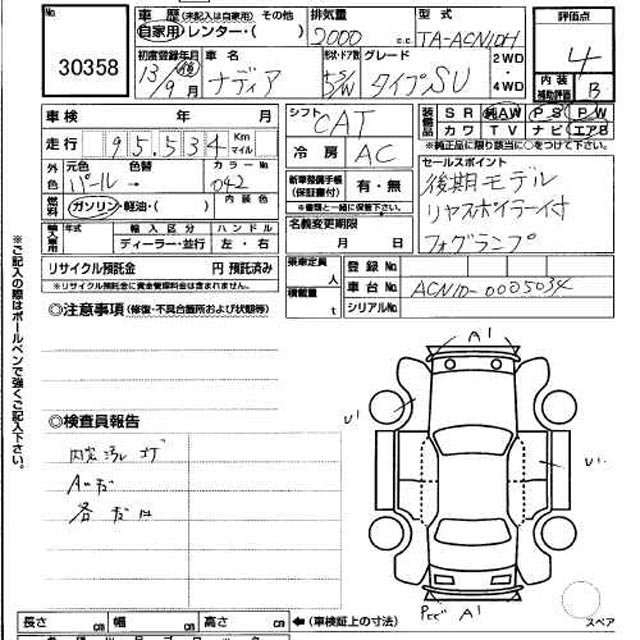 No.
30358
車歴 (未記入は自家用) その他
自家用・レンタ―・( )
排気量
2000 c.c.
型式
TA-ACN10H
評価点
4
内装
補助評価 B
初度登録年月
13/9月
車名
ナディア
形状・ドア数
5
S/W
グレード
タイプSU
2WD
・
4WD
車検 年 月
走行 95,534 Km
マイル
シフト CAT
冷房 AC
装備品 SR 純AW PS PW
カワ TV ナビ エアB
※純正品に限り該当に○をつけて下さい。
外色 元色 色替 カラーNo
パール → 042
燃料 ガソリン・軽油・( ) 内装色
輸入車用 年式 輸入区分 ハンドル
ディーラー・並行 左・右
新車整備手帳
(保証書付) 有・無
※書類と一緒に保管下さい。
名義変更期限
月 日
セールスポイント
後期モデル
リヤスポイラー付
フォグランプ
リサイクル預託金 円 預託済み
※リサイクル預託金に資金管理料金は含まれません。
乗車定員 人
積載量 t
登録No.
車台No. ACN10-0005034
シリアルNo.
◎注意事項 (修復・不具合箇所および状態等)
※ご記入の際はボールペンで強くご記入下さい。
◎検査員報告
内装汚れ コゲ
A
各
A1
U1
U1
A1
スペア
長さ cm 幅 cm 高さ cm ←(車検証上の寸法)